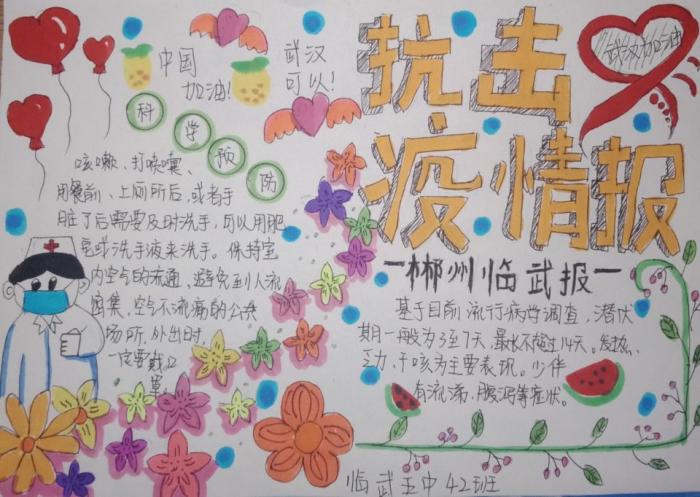 中国
加油!
武汉
可以!
抗击
疫情报
武汉加油
科学预防
咳嗽、打喷嚏、
用餐前、上厕所后,或者手
脏了后需要及时洗手,可以用肥
皂或洗手液来洗手。保持室
内空气的流通,避免到人流
密集,空气不流通的公共
场所,外出时,
一定要戴口
罩。
一郴州临武报一
基于目前流行病学调查,潜伏
期一般为3至7天,最长不超过14天。发热、
乏力、干咳为主要表现。少伴
有流涕,腹泻等症状。
临武五中42班